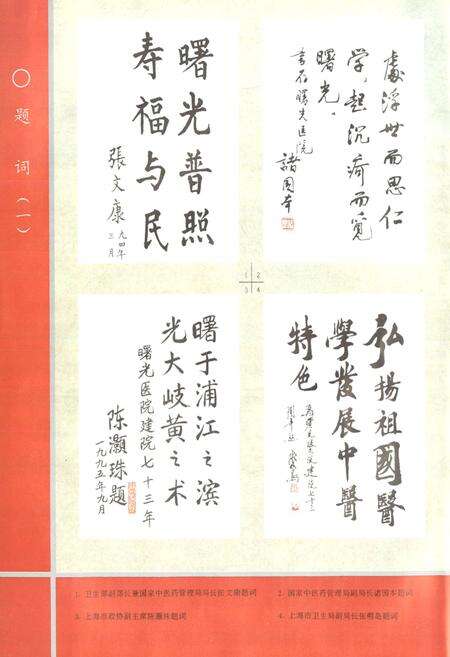 ○ 题词（一）
曙光普照
寿福与民
張文康
九四年
三月
處浮世而思仁
学，起沉疴而覓
曙光。
书石曙光医院
諸國本
1 2
3 4
曙于浦江之滨
光大岐黄之术
曙光医院建院七十三年
陈灏珠題
一九九五年九月
弘揚祖國醫
學發展中醫
特色
1. 卫生部副部长兼国家中医药管理局局长张文康题词
2. 国家中医药管理局副局长诸国本题词
3. 上海市政协副主席陈灏珠题词
4. 上海市卫生局副局长张明岛题词